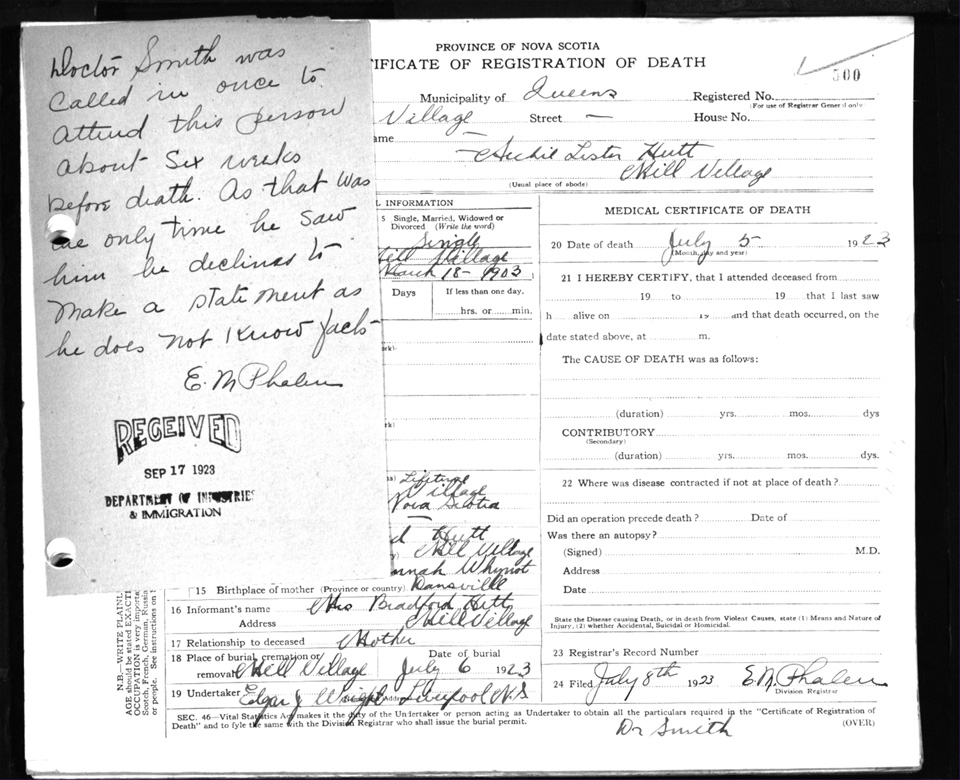 Doctor Smith was
Called in once to
attend this person
about Six weeks
before death. As that was
the only time he saw
him he declines to
make a statement as
he does not know facts
E. M Phalen
RECEIVED
SEP 17 1923
DEPARTMENT OF INDUSTRIES
& IMMIGRATION
PROVINCE OF NOVA SCOTIA
TIFICATE OF REGISTRATION OF DEATH
500
Municipality of Queens Registered No.
(For use of Registrar General only)
Village Street — House No.
ame
Lester Hutt
Mill Village
(Usual place of abode)
L INFORMATION
5 Single, Married, Widowed or
Divorced (Write the word)
Single
Village
March 18- 1903
Days If less than one day,
hrs. or min.
Lifetime
Village
Nova Scotia
Hutt
Mill Village
nnah Whynot
15 Birthplace of mother (Province or country) Dansville
16 Informant's name Mrs Bradford Hutt
Address Mill Village
17 Relationship to deceased Mother
18 Place of burial, cremation or Date of burial
removal Mill Village July 6 1923
19 Undertaker Edgar J Wright Liverpool N.S
MEDICAL CERTIFICATE OF DEATH
20 Date of death July 5 1923
(Month, day and year)
21 I HEREBY CERTIFY, that I attended deceased from
19 to 19 that I last saw
h alive on 19 and that death occurred, on the
date stated above, at m.
The CAUSE OF DEATH was as follows:
(duration) yrs. mos. dys
CONTRIBUTORY
(Secondary)
(duration) yrs. mos. dys.
22 Where was disease contracted if not at place of death?
Did an operation precede death? Date of
Was there an autopsy?
(Signed) M.D.
Address
Date
State the Disease causing Death, or in death from Violent Causes, state (1) Means and Nature of
Injury, (2) whether Accidental, Suicidal or Homicidal.
23 Registrar's Record Number
24 Filed July 8th 1923 E M Phalen
Division Registrar
N.B.—WRITE PLAINL
AGE should be stated EXACTL
OCCUPATION is very importa
Scotch, French, German, Russia
or people. See instructions on
SEC. 46—Vital Statistics Act makes it the duty of the Undertaker or person acting as Undertaker to obtain all the particulars required in the "Certificate of Registration of
Death" and to file the same with the Division Registrar who shall issue the burial permit.
(OVER)
Dr Smith